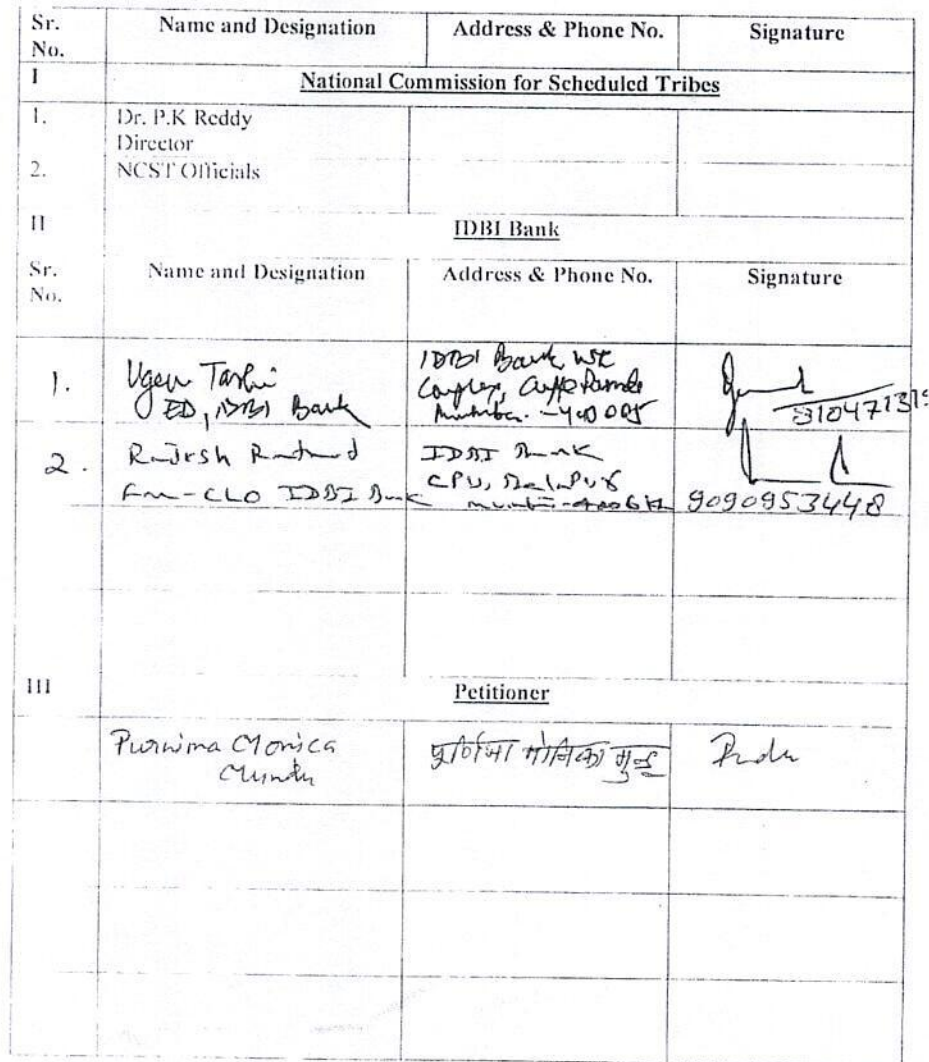 Sr. No. Name and Designation Address & Phone No. Signature
I National Commission for Scheduled Tribes
1. Dr. P.K Reddy
Director
2. NCST Officials
II IDBI Bank
Sr. No. Name and Designation Address & Phone No. Signature
1. Ugen Tashi
ED, IDBI Bank
IDBI Bank, WTC
Complex, Cuffe Parade
Mumbai - 400005
2. Rajesh
CLO IDBI Bank
IDBI Bank
CPU,
9090953448
III Petitioner
Purnima Monica
Munda
पूर्णिमा मोनिका मुन्डू